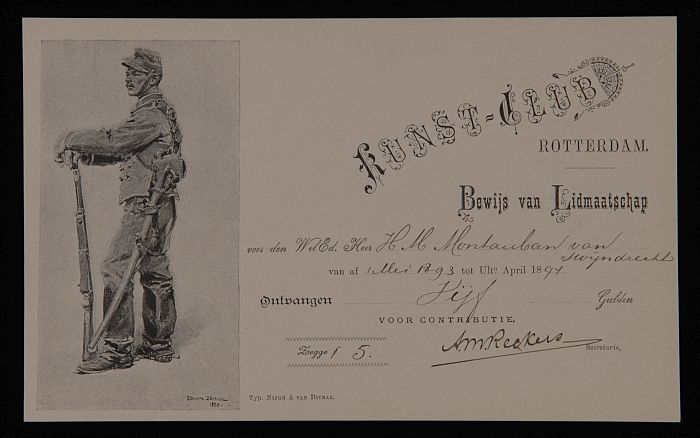 KUNST-CLUB
ROTTERDAM.
Bewijs van Lidmaatschap
voor den WelEd. Heer H. M. Montauban van Swijndrecht
van af 1 Mei 1893 tot Ulto April 1894
Ontvangen Vijf Gulden
VOOR CONTRIBUTIE.
Zegge f 5.
AMReckers
Secretaris,
Typ. Nijgh & van Ditmar.